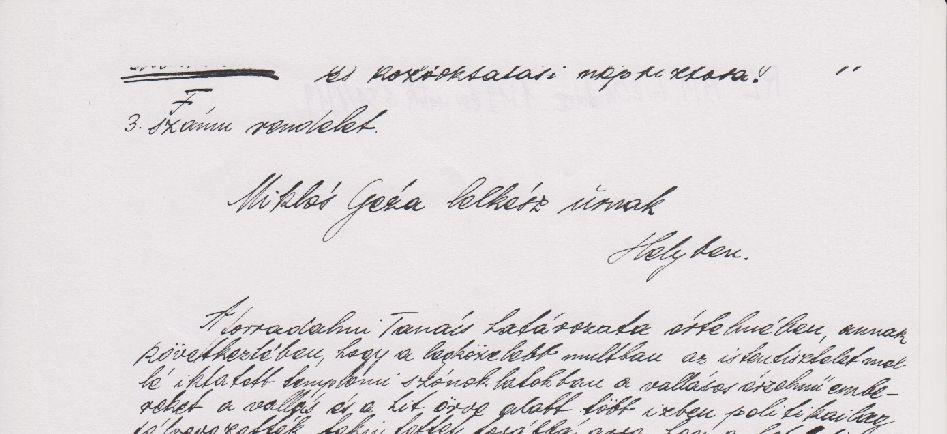 és közoktatási népbiztosa!
F
3. számu rendelet.
Miklós Géza lelkész úrnak
Helyben.
A forradalmi Tanács határozata értelmében, annak
következtében, hogy a legközelebb multban az istentiszteletmel
bé iktatott templomi szónoklatokban a vallásos érzelmü embe-
reket a vallás és a hit örve alatt több izben politikailag